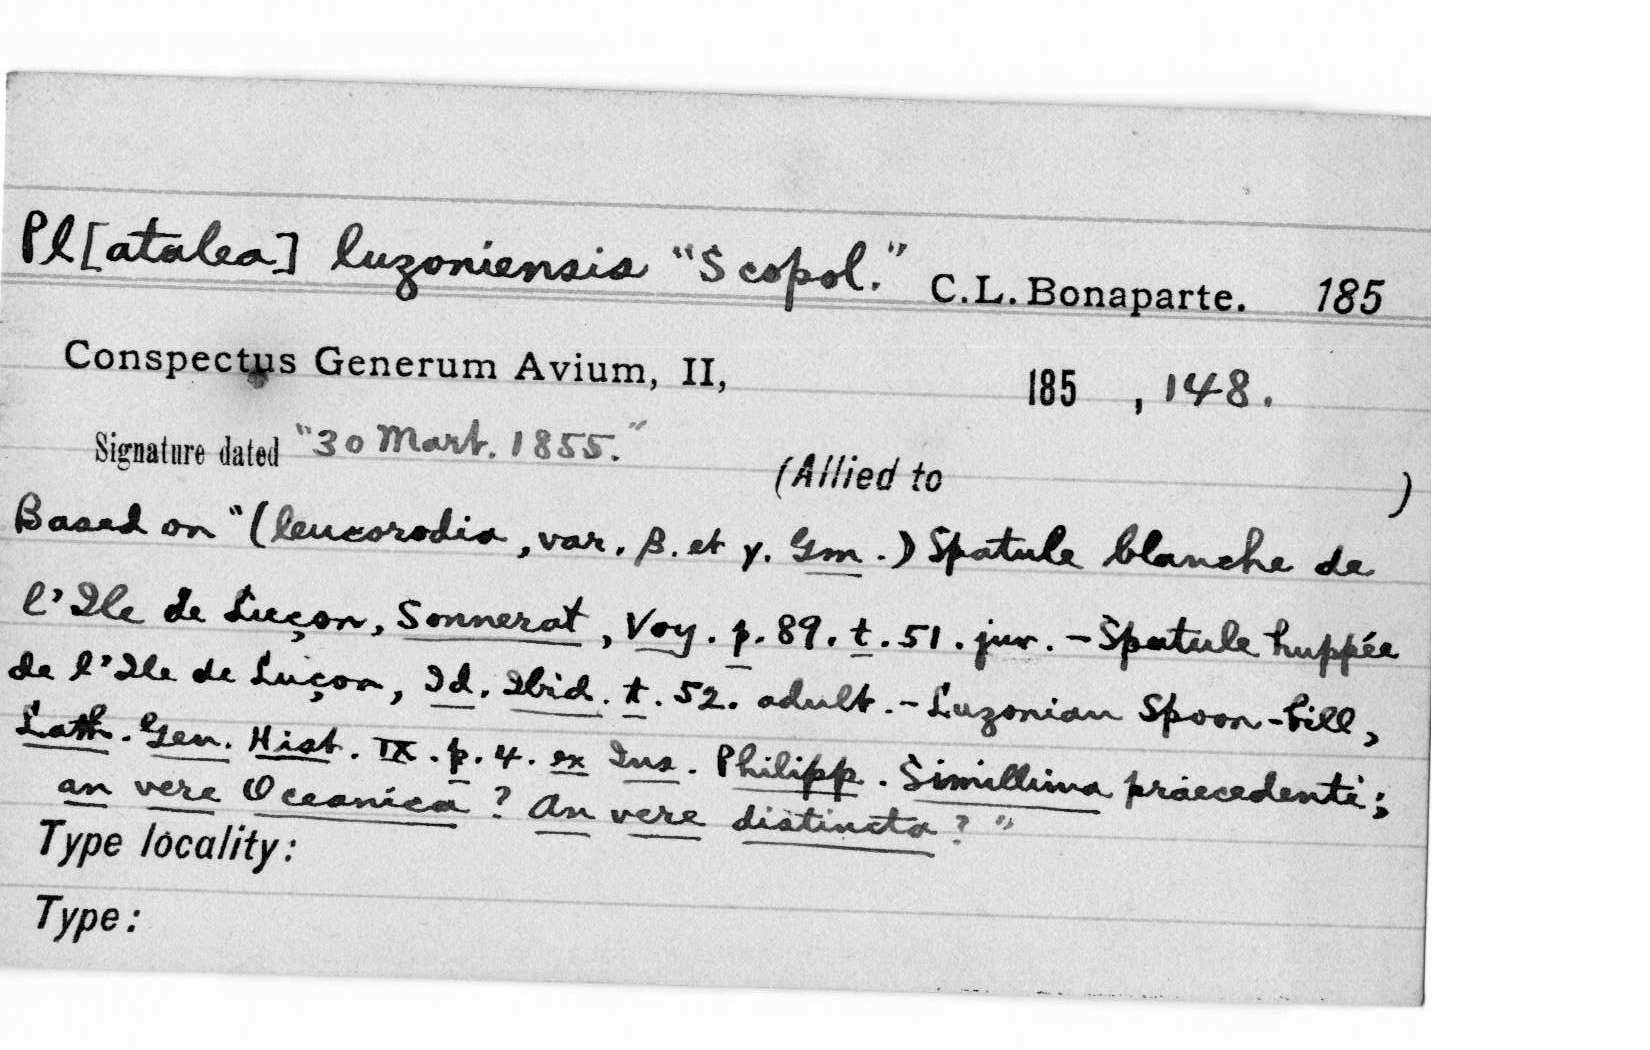 Pl[atalea] luzoniensis "Scopol." C.L. Bonaparte. 185
Conspectus Generum Avium, II, 185 , 148.
Signature dated "30 Mart. 1855." (Allied to )
Based on "(leucorodia, var. β. et γ. Gm.) Spatule blanche de
l'Ile de Luçon, Sonnerat, Voy. p. 89. t. 51. juv. - Spatule huppée
de l'Ile de Luçon, Id. Ibid. t. 52. adult. - Luzonian Spoon-bill,
Lath. Gen. Hist. IX. p. 4. ex Ins. Philipp. Simillima praecedenti;
an vere Oceanica? An vere distincta?"
Type locality:
Type: